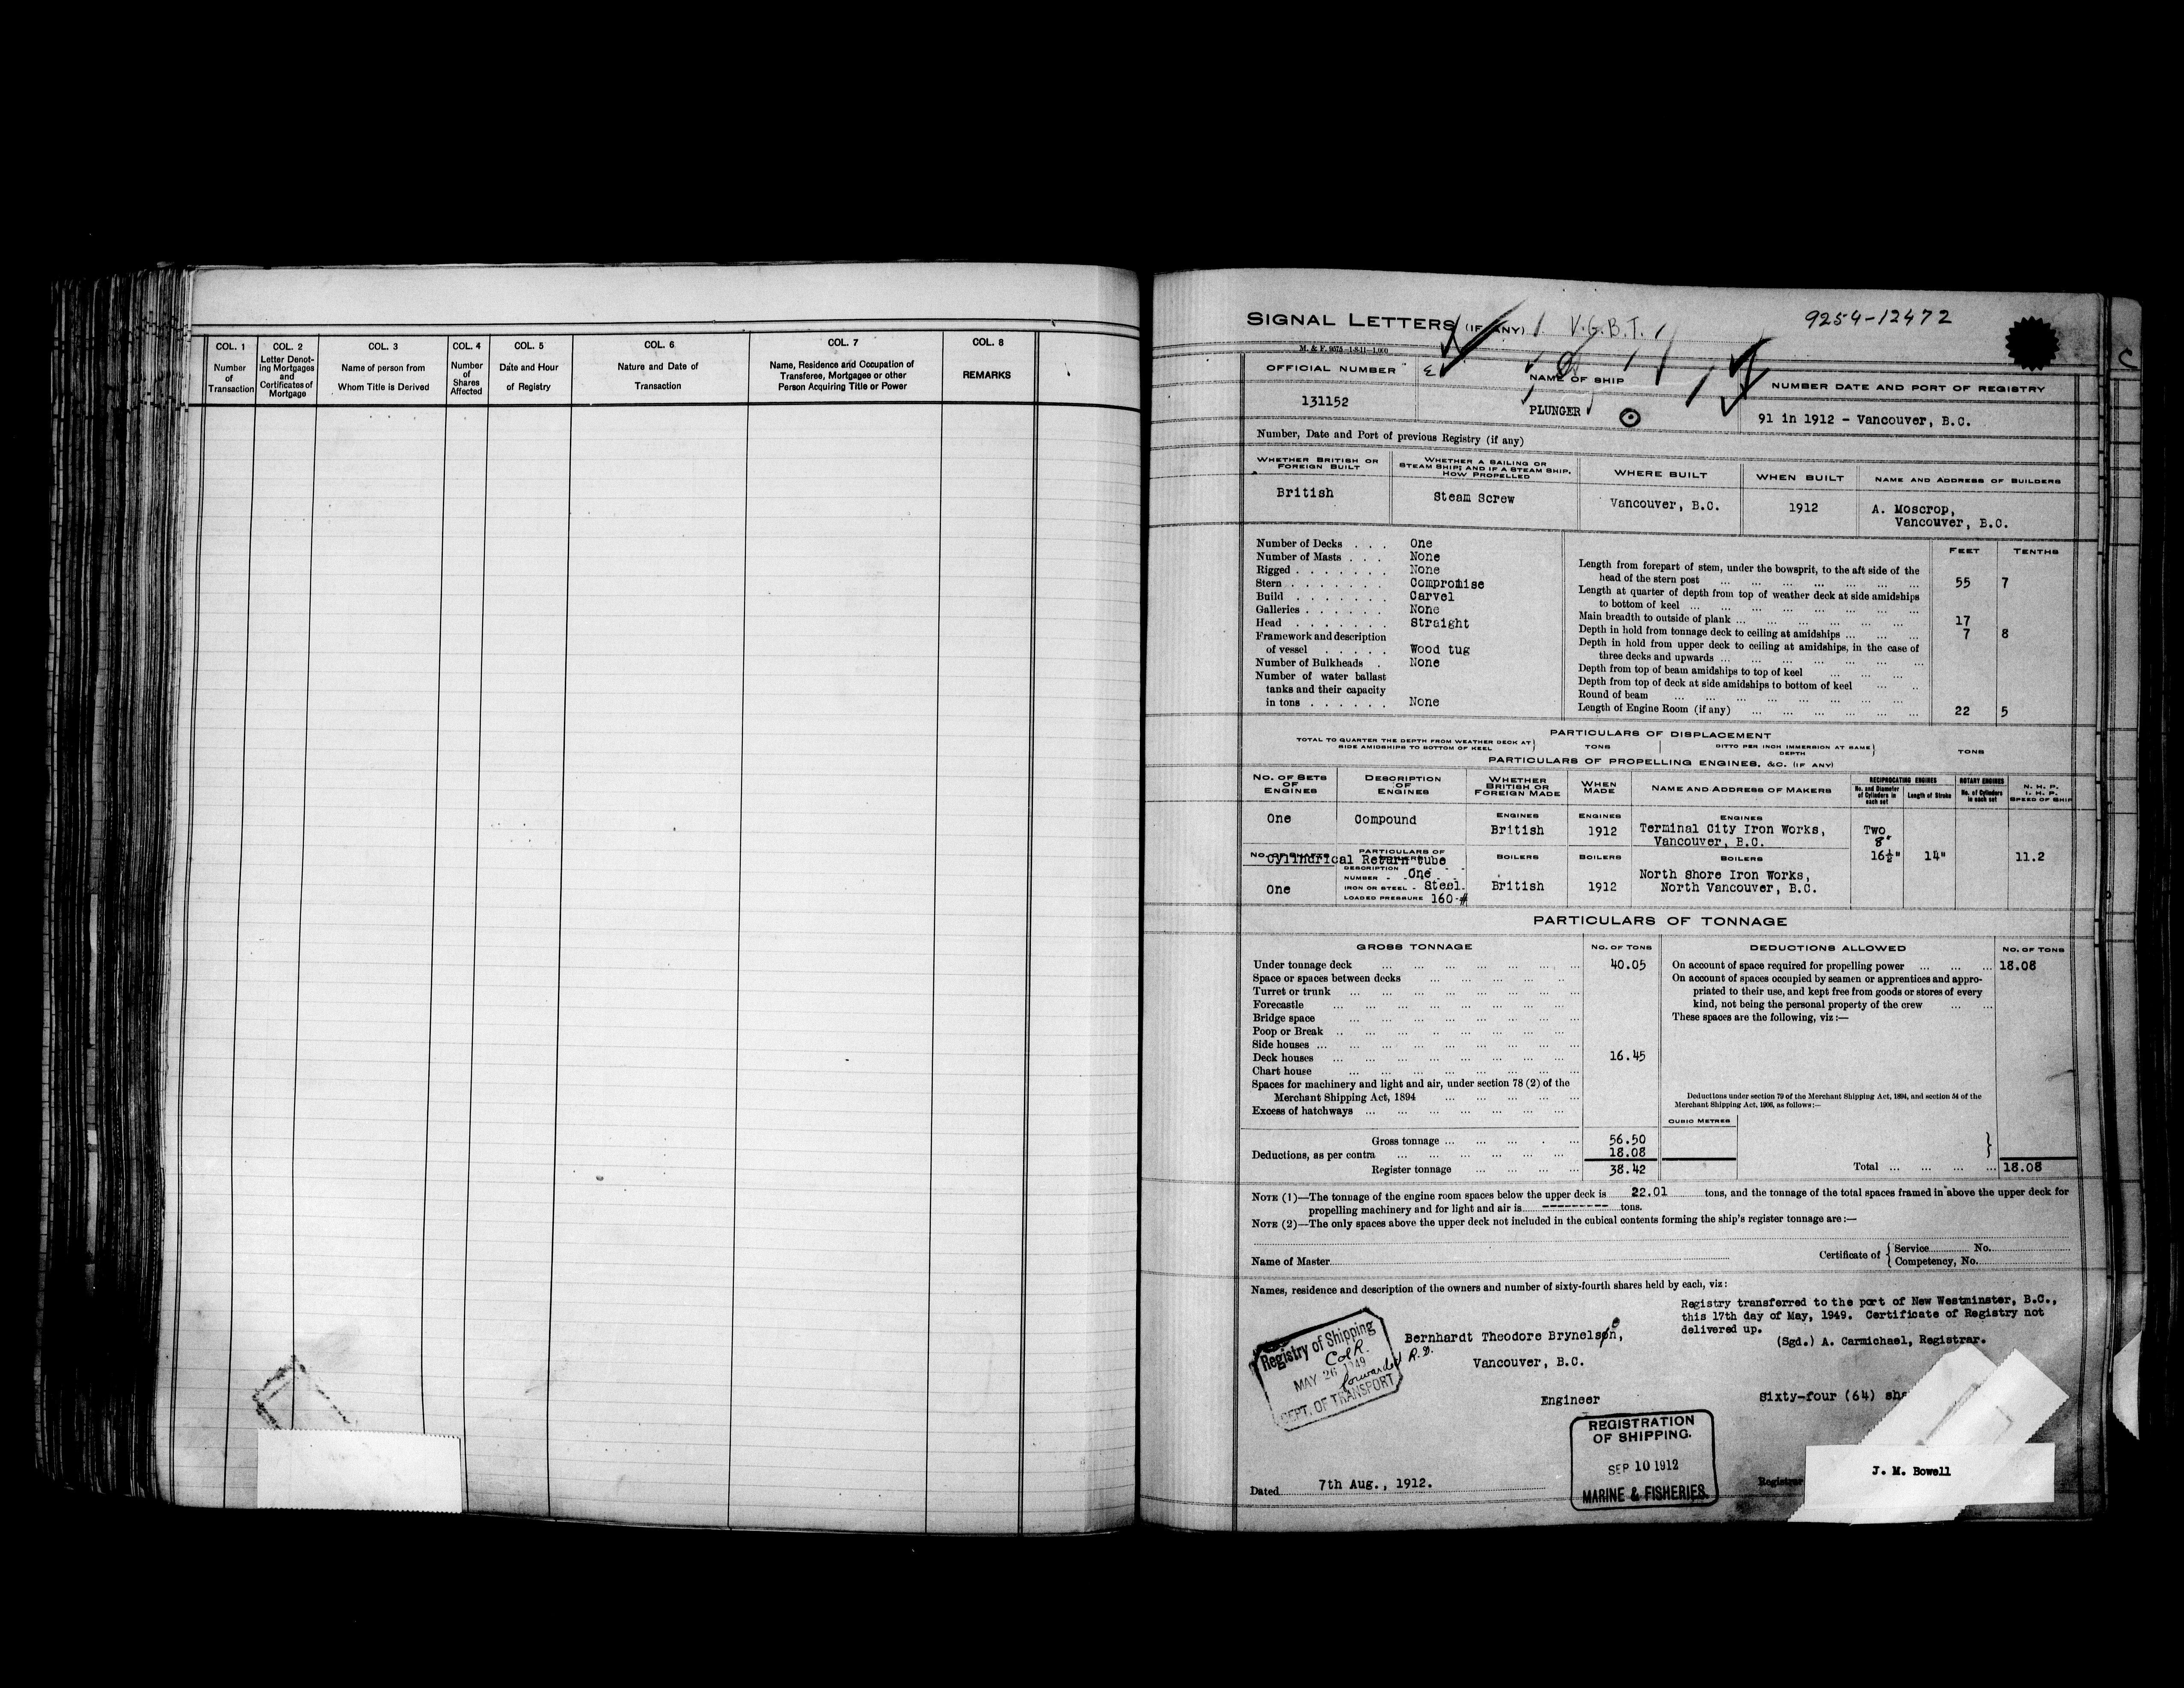 COL. 1
Number
of
Transaction
COL. 2
Letter Denot-
ing Mortgages
and
Certificates of
Mortgage
COL. 3
Name of person from
Whom Title is Derived
COL. 4
Number
of
Shares
Affected
COL. 5
Date and Hour
of Registry
COL. 6
Nature and Date of
Transaction
COL. 7
Name, Residence and Occupation of
Transferee, Mortgagee or other
Person Acquiring Title or Power
COL. 8
REMARKS
SIGNAL LETTERS (IF ANY) V.G.B.T.
9254-12472
M. & F. 9575-1-8-11-1,000
OFFICIAL NUMBER
131152
NAME OF SHIP
PLUNGER
NUMBER DATE AND PORT OF REGISTRY
91 in 1912 - Vancouver, B.C.
Number, Date and Port of previous Registry (if any)
WHETHER BRITISH OR
FOREIGN BUILT
British
WHETHER A SAILING OR
STEAM SHIP; AND IF A STEAM SHIP,
HOW PROPELLED
Steam Screw
WHERE BUILT
Vancouver, B.C.
WHEN BUILT
1912
NAME AND ADDRESS OF BUILDERS
A. Moscrop,
Vancouver, B.C.
Number of Decks . . . One
Number of Masts . . . None
Rigged . . . . . . . None
Stern . . . . . . . Compromise
Build . . . . . . . Carvel
Galleries . . . . . . None
Head . . . . . . . Straight
Framework and description
of vessel . . . . . Wood tug
Number of Bulkheads . None
Number of water ballast
tanks and their capacity
in tons . . . . . . None
FEET TENTHS
Length from forepart of stem, under the bowsprit, to the aft side of the
head of the stern post 55 7
Length at quarter of depth from top of weather deck at side amidships
to bottom of keel
Main breadth to outside of plank 17
Depth in hold from tonnage deck to ceiling at amidships 7 8
Depth in hold from upper deck to ceiling at amidships, in the case of
three decks and upwards
Depth from top of beam amidships to top of keel
Depth from top of deck at side amidships to bottom of keel
Round of beam
Length of Engine Room (if any) 22 5
PARTICULARS OF DISPLACEMENT
TOTAL TO QUARTER THE DEPTH FROM WEATHER DECK AT
SIDE AMIDSHIPS TO BOTTOM OF KEEL
TONS
DITTO PER INCH IMMERSION AT SAME
DEPTH
TONS
PARTICULARS OF PROPELLING ENGINES, &C. (IF ANY)
NO. OF SETS
OF
ENGINES
DESCRIPTION
OF
ENGINES
WHETHER
BRITISH OR
FOREIGN MADE
WHEN
MADE
NAME AND ADDRESS OF MAKERS
RECIPROCATING ENGINES
No. and Diameter
of Cylinders in
each set
Length of Stroke
ROTARY ENGINES
No. of Cylinders
in each set
N. H. P.
I. H. P.
SPEED OF SHIP
One
Compound
ENGINES
British
ENGINES
1912
ENGINES
Terminal City Iron Works,
Vancouver, B.C.
Two
8"
16½" 14" 11.2
NO. OF SHAFTS
PARTICULARS OF
Cylindrical Return tube
DESCRIPTION
NUMBER - One
IRON OR STEEL - Steel.
LOADED PRESSURE 160-#
One
BOILERS
British
BOILERS
1912
BOILERS
North Shore Iron Works,
North Vancouver, B.C.
PARTICULARS OF TONNAGE
GROSS TONNAGE
NO. OF TONS
Under tonnage deck 40.05
Space or spaces between decks
Turret or trunk
Forecastle
Bridge space
Poop or Break
Side houses
Deck houses 16.45
Chart house
Spaces for machinery and light and air, under section 78 (2) of the
Merchant Shipping Act, 1894
Excess of hatchways
Gross tonnage 56.50
Deductions, as per contra 18.08
Register tonnage 38.42
DEDUCTIONS ALLOWED
NO. OF TONS
On account of space required for propelling power 18.08
On account of spaces occupied by seamen or apprentices and appro-
priated to their use, and kept free from goods or stores of every
kind, not being the personal property of the crew
These spaces are the following, viz :—
Deductions under section 79 of the Merchant Shipping Act, 1894, and section 54 of the
Merchant Shipping Act, 1906, as follows:—
CUBIC METRES
Total 18.08
NOTE (1)—The tonnage of the engine room spaces below the upper deck is 22.01 tons, and the tonnage of the total spaces framed in above the upper deck for
propelling machinery and for light and air is --------- tons.
NOTE (2)—The only spaces above the upper deck not included in the cubical contents forming the ship's register tonnage are :—
Name of Master
Certificate of
Service No.
Competency, No.
Names, residence and description of the owners and number of sixty-fourth shares held by each, viz :
Registry transferred to the port of New Westminster, B.C.,
this 17th day of May, 1949. Certificate of Registry not
delivered up.
(Sgd.) A. Carmichael, Registrar.
Registry of Shipping
CofR.
MAY 26 1949
forwarded R.D.
DEPT. OF TRANSPORT
Bernhardt Theodore Brynelson,
Vancouver, B.C.
Engineer
Sixty-four (64)
REGISTRATION
OF SHIPPING.
SEP 10 1912
MARINE & FISHERIES
Dated 7th Aug., 1912.
Registrar
J. M. Bowell